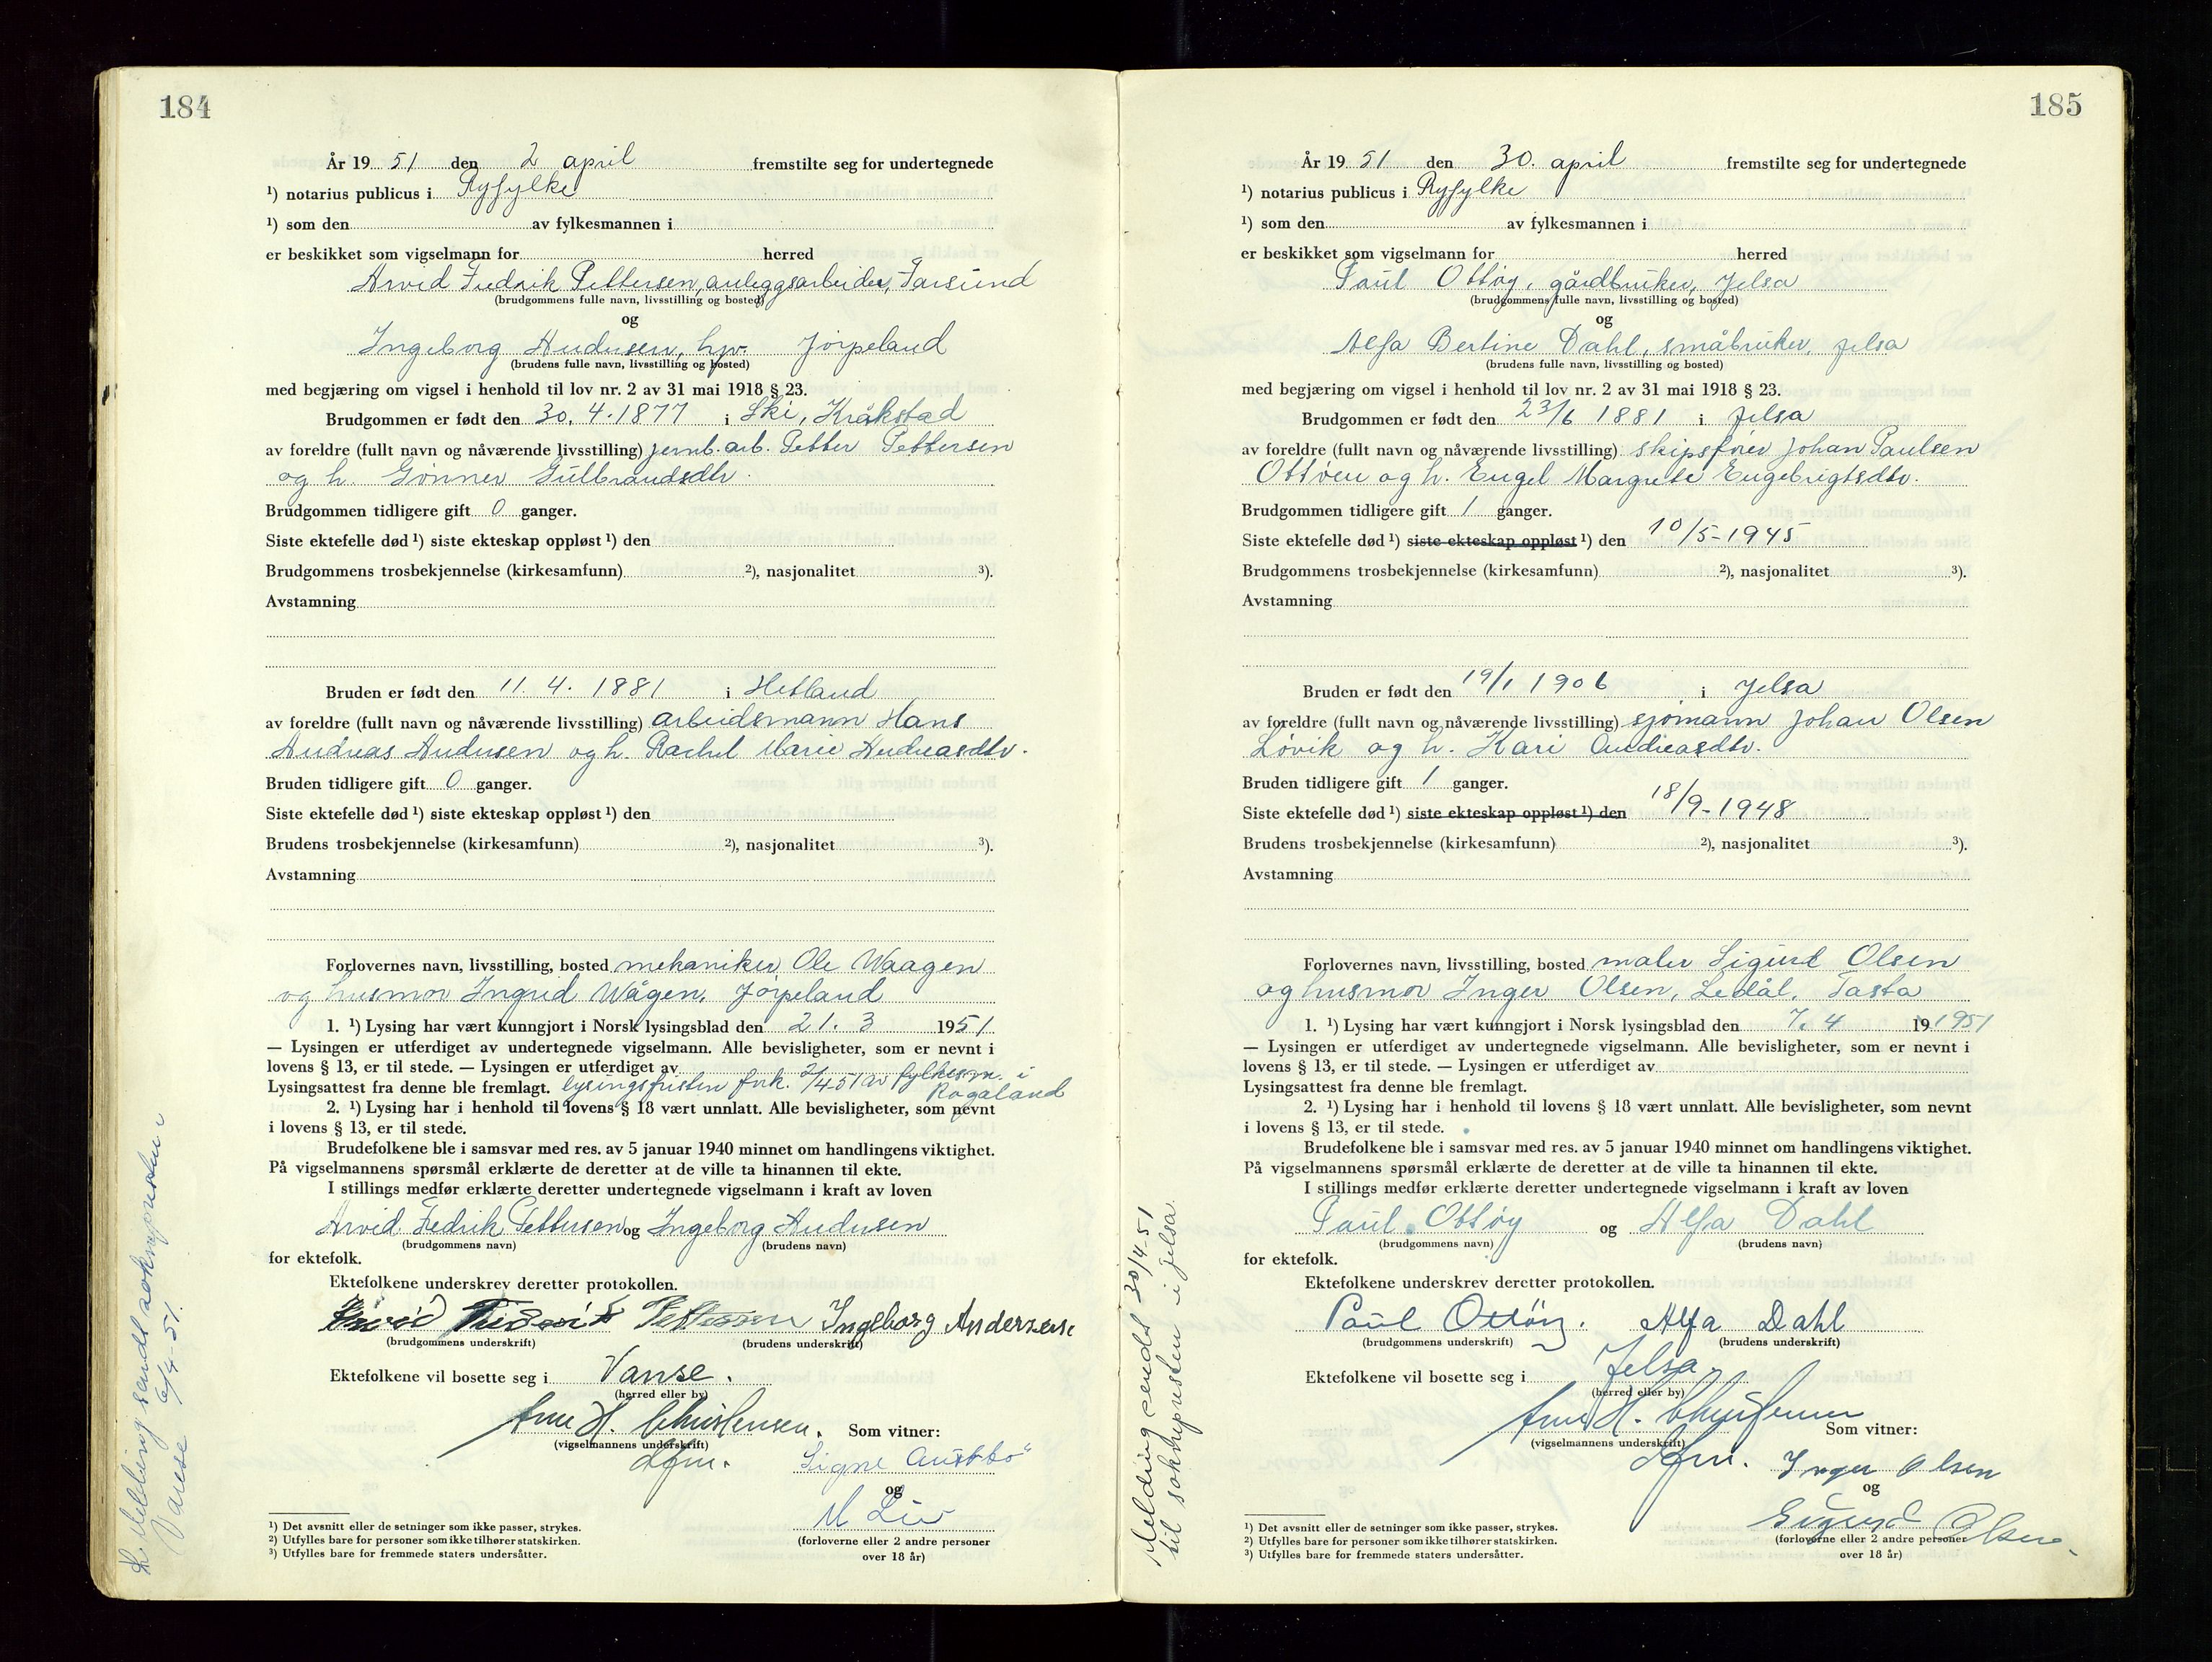 184
År 1951 den 2 april fremstilte seg for undertegnede
¹) notarius publicus i Ryfylke
¹) som den av fylkesmannen i
er beskikket som vigselmann for herred
Arvid Fredrik Pettersen, anleggsarbeider, Farsund
(brudgommens fulle navn, livsstilling og bosted)
og
Ingeborg Andersen, hjv. Jørpeland
(brudens fulle navn, livsstilling og bosted)
med begjæring om vigsel i henhold til lov nr. 2 av 31 mai 1918 § 23.
Brudgommen er født den 30.4.1877 i Ski, Kråkstad
av foreldre (fullt navn og nåværende livsstilling) jernb.arb. Petter Pettersen
og h. Gunner Gulbrandsdtr.
Brudgommen tidligere gift 0 ganger.
Siste ektefelle død ¹) siste ekteskap oppløst ¹) den
Brudgommens trosbekjennelse (kirkesamfunn) ²), nasjonalitet ³).
Avstamning
Bruden er født den 11.4.1881 i Hetland
av foreldre (fullt navn og nåværende livsstilling) arbeidsmann Hans
Andreas Andersen og h. Rachel Marie Andreasdtr.
Bruden tidligere gift 0 ganger.
Siste ektefelle død ¹) siste ekteskap oppløst ¹) den
Brudens trosbekjennelse (kirkesamfunn) ²), nasjonalitet ³).
Avstamning
Forlovernes navn, livsstilling, bosted mekaniker Ole Waagen
og husmor Ingrid Wågen, Jørpeland
1. ¹) Lysing har vært kunngjort i Norsk lysingsblad den 21.3 1951
— Lysingen er utferdiget av undertegnede vigselmann. Alle bevisligheter, som er nevnt i
lovens § 13, er til stede. — Lysingen er utferdiget av
Lysingsattest fra denne ble fremlagt. lysingsfristen fork. 2/4 51 av fylkesm. i
Rogaland
2. ¹) Lysing har i henhold til lovens § 18 vært unnlatt. Alle bevisligheter, som nevnt
i lovens § 13, er til stede.
Brudefolkene ble i samsvar med res. av 5 januar 1940 minnet om handlingens viktighet.
På vigselmannens spørsmål erklærte de deretter at de ville ta hinannen til ekte.
I stillings medfør erklærte deretter undertegnede vigselmann i kraft av loven
Arvid Fedrik Pettersen og Ingeborg Andersen
(brudgommens navn) (brudens navn)
for ektefolk.
Ektefolkene underskrev deretter protokollen.
Arvid Fredrik Pettersen Ingeborg Andersen
(brudgommens underskrift) (brudens underskrift)
Ektefolkene vil bosette seg i Vanse.
(herred eller by)
Arne H. Christensen. Som vitner:
(vigselmannens underskrift)
Lfm. Signe Austbø
og
M Liv
¹) Det avsnitt eller de setninger som ikke passer, strykes.
²) Utfylles bare for personer som ikke tilhører statskirken.
³) Utfylles bare for fremmede staters undersåtter.
(forloverne eller 2 andre personer
over 18 år)
Melding sendt soknepresten i
Vanse 6/4-51.
185
År 1951 den 30. april fremstilte seg for undertegnede
¹) notarius publicus i Ryfylke
¹) som den av fylkesmannen i
er beskikket som vigselmann for herred
Paul Ottøy, gårdbruker, Jelsa
(brudgommens fulle navn, livsstilling og bosted)
og
Alfa Bertine Dahl, småbruker, Jelsa
(brudens fulle navn, livsstilling og bosted)
med begjæring om vigsel i henhold til lov nr. 2 av 31 mai 1918 § 23.
Brudgommen er født den 23/6 1881 i Jelsa
av foreldre (fullt navn og nåværende livsstilling) skipsfører Johan Paulsen
Ottøen og h. Engel Margrete Engebrigtsdtr.
Brudgommen tidligere gift 1 ganger.
Siste ektefelle død ¹) siste ekteskap oppløst ¹) den 10/5-1945
Brudgommens trosbekjennelse (kirkesamfunn) ²), nasjonalitet ³).
Avstamning
Bruden er født den 19/1 1906 i Jelsa
av foreldre (fullt navn og nåværende livsstilling) sjømann Johan Olsen
Løvik og h. Kari Andreasdtr.
Bruden tidligere gift 1 ganger.
Siste ektefelle død ¹) siste ekteskap oppløst ¹) den 18/9-1948
Brudens trosbekjennelse (kirkesamfunn) ²), nasjonalitet ³).
Avstamning
Forlovernes navn, livsstilling, bosted maler Sigurd Olsen
og husmor Inger Olsen, Ledål, Tasta
1. ¹) Lysing har vært kunngjort i Norsk lysingsblad den 7.4 19 1951
— Lysingen er utferdiget av undertegnede vigselmann. Alle bevisligheter, som er nevnt i
lovens § 13, er til stede. — Lysingen er utferdiget av
Lysingsattest fra denne ble fremlagt.
2. ¹) Lysing har i henhold til lovens § 18 vært unnlatt. Alle bevisligheter, som nevnt
i lovens § 13, er til stede.
Brudefolkene ble i samsvar med res. av 5 januar 1940 minnet om handlingens viktighet.
På vigselmannens spørsmål erklærte de deretter at de ville ta hinannen til ekte.
I stillings medfør erklærte deretter undertegnede vigselmann i kraft av loven
Paul Ottøy og Alfa Dahl
(brudgommens navn) (brudens navn)
for ektefolk.
Ektefolkene underskrev deretter protokollen.
Paul Ottöy. Alfa Dahl
(brudgommens underskrift) (brudens underskrift)
Ektefolkene vil bosette seg i Jelsa.
(herred eller by)
Arne H. Christensen Som vitner:
(vigselmannens underskrift)
Lfm. Inger Olsen
og
Sigurd Olsen.
¹) Det avsnitt eller de setninger som ikke passer, strykes.
²) Utfylles bare for personer som ikke tilhører statskirken.
³) Utfylles bare for fremmede staters undersåtter.
(forloverne eller 2 andre personer
over 18 år)
Melding sendt 30/4-51
til soknepresten i Jelsa.